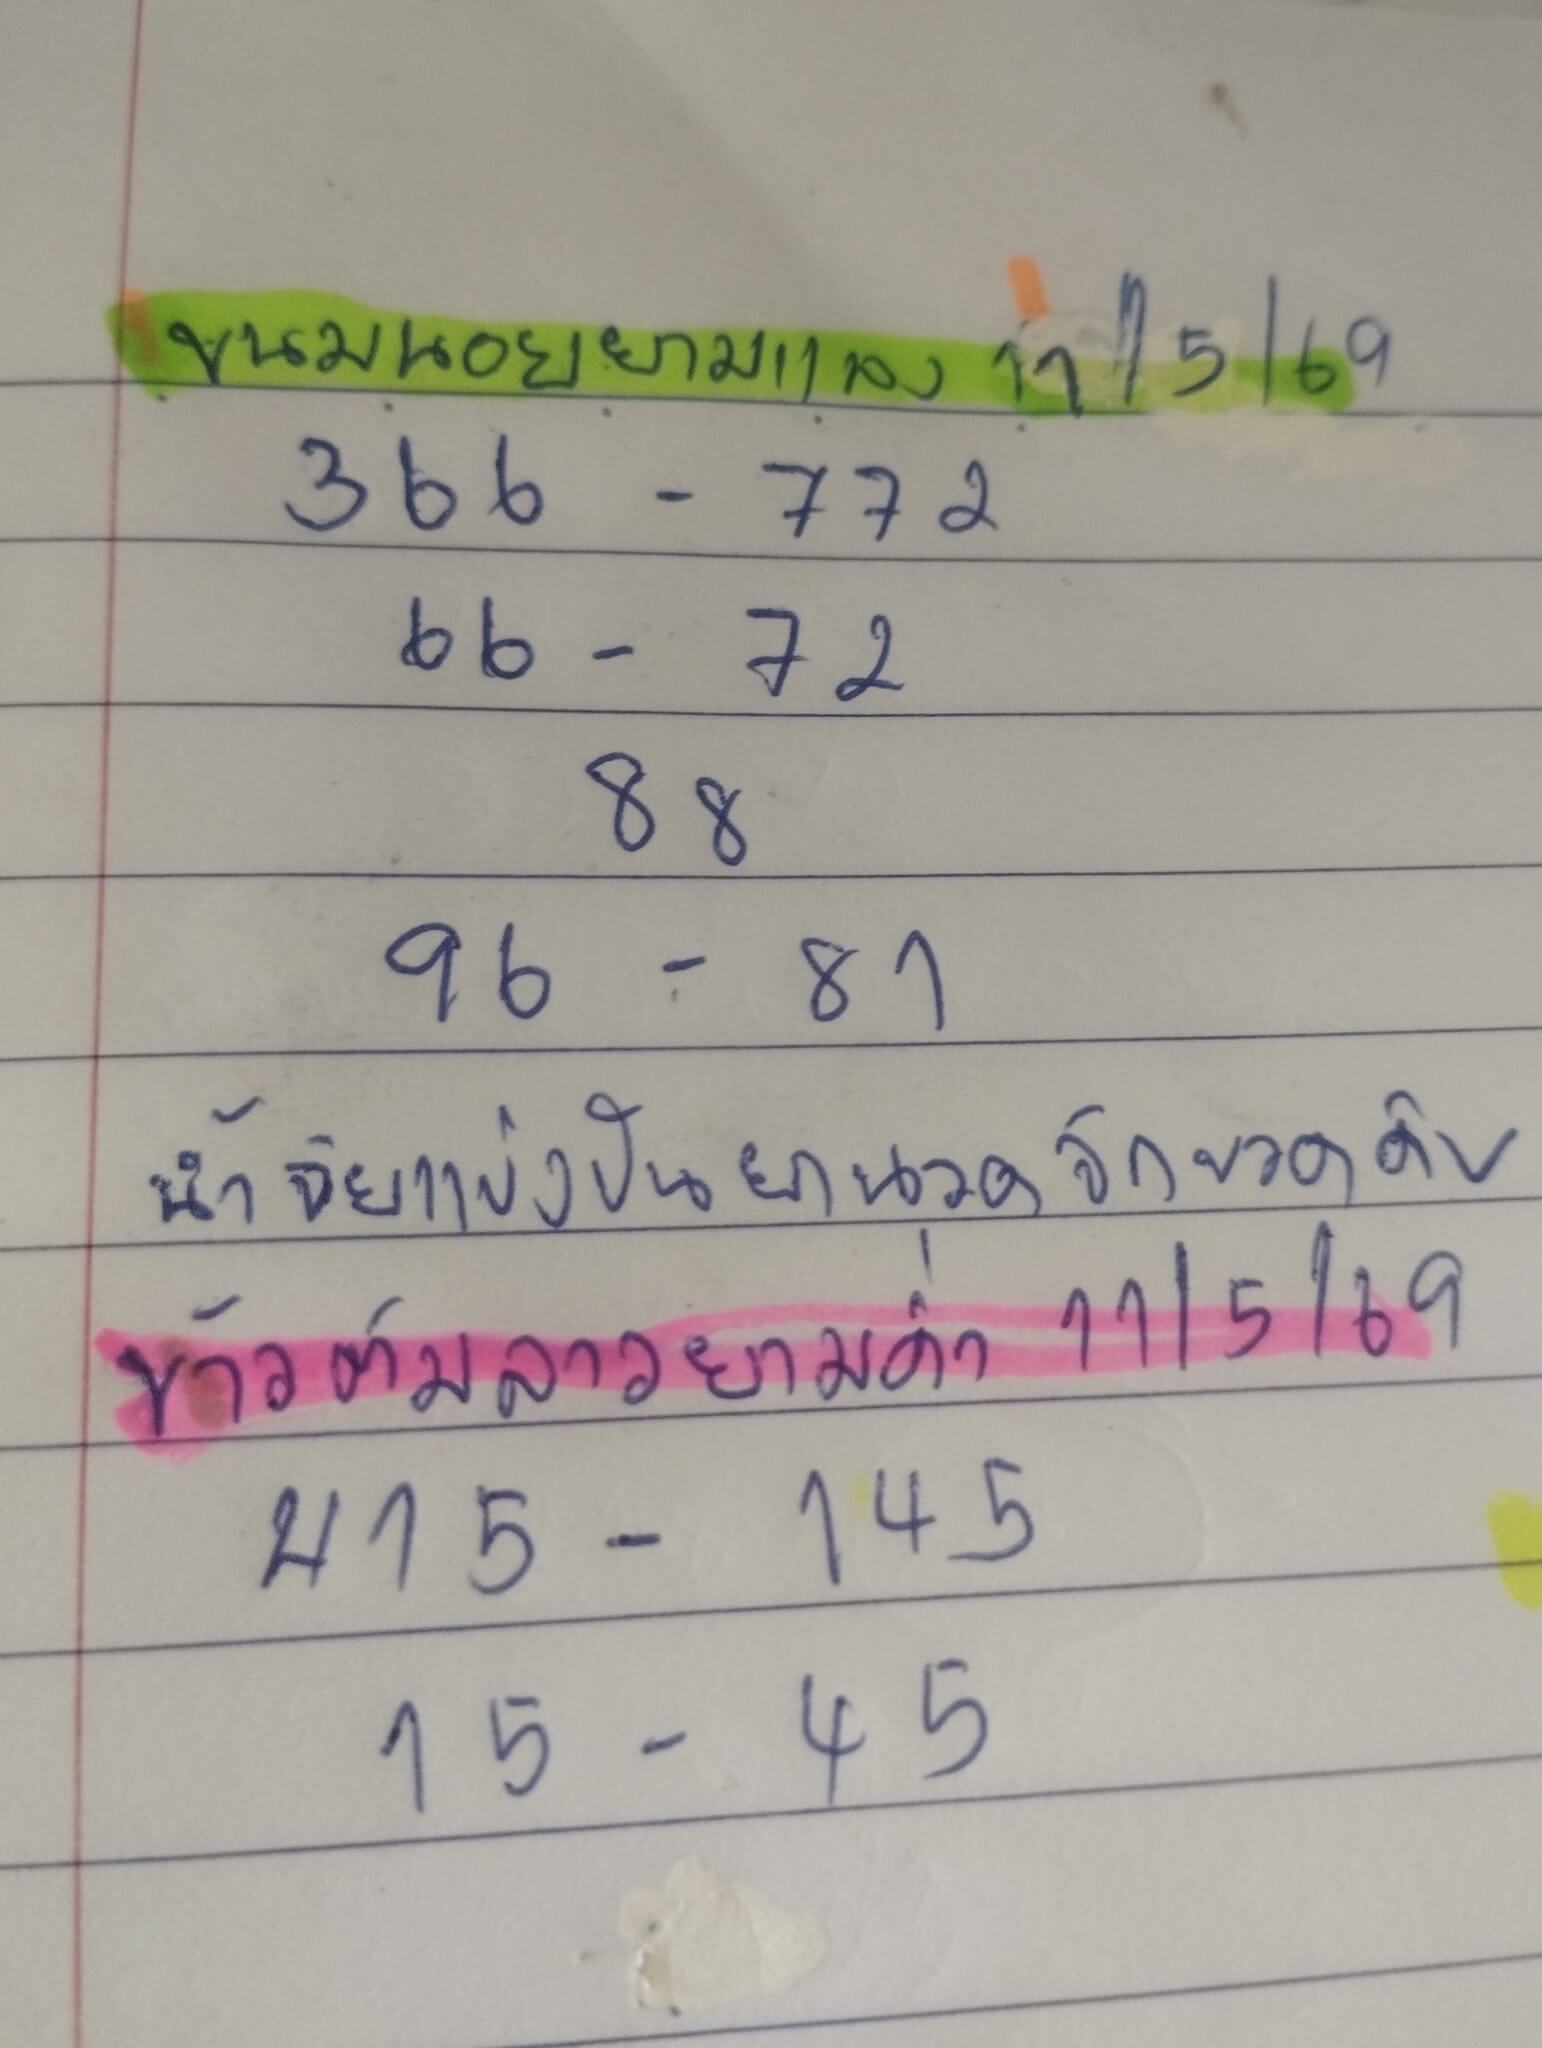 ขนมนอยยามแลง 11/5/69
366 - 772
66 - 72
88
96 - 81
น้ำจิยแบ่งปันยานวดจักขวดคิบ
ข้าวต้มลาวยามค่ำ 11/5/69
415 - 145
15 - 45